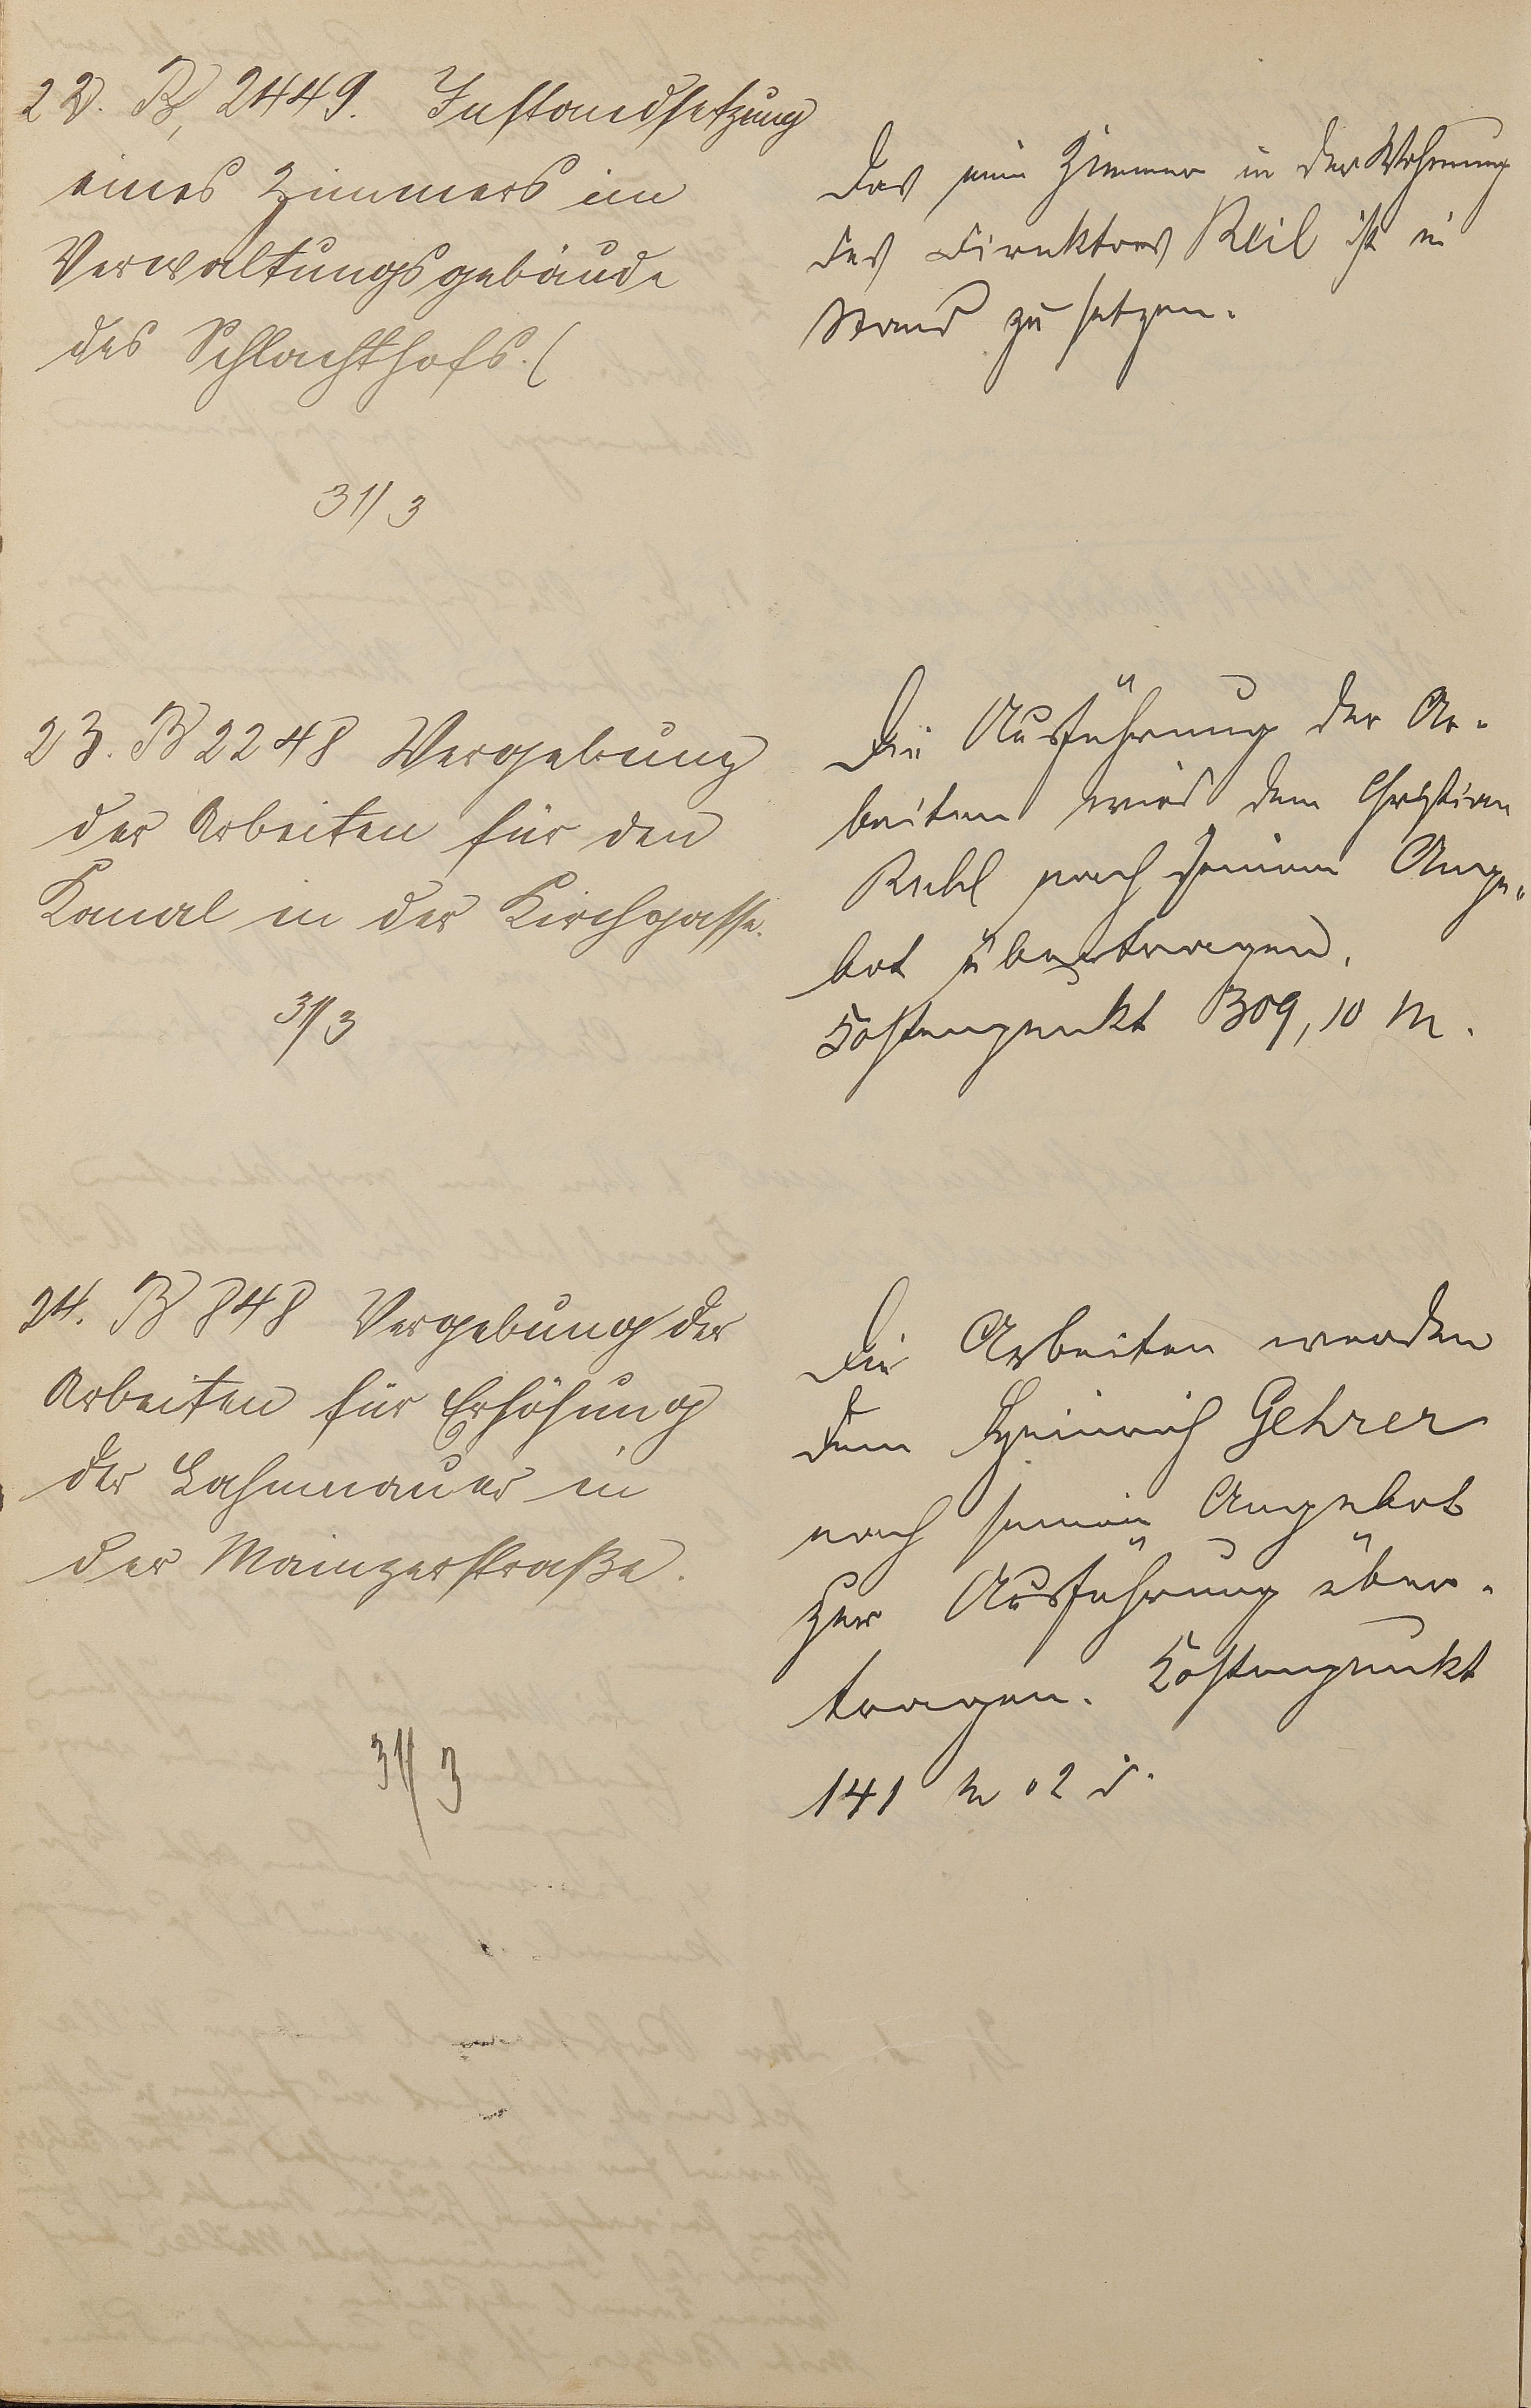 22. B, 2449. Instandsetzung
eines Zimmers im
Verwaltungsgebäude
des Schlachthofs. (
31/3
Das eine Zimmer in der Wohnung
des Direktors Keil ist in
Stand zu setzen.
23. B 2248 Vergebung
der Arbeiten für den
Kanal in der Kirchgasse.
31/3
Die Ausführung der Ar-
beiten wird dem Christian
nach seinem Ange-
bot übertragen.
Kostenpunkt 309,10 M.
24. B 848 Vergebung der
Arbeiten für Erhöhung
der Lahnmauer in
der Mainzerstraße.
31/3
Die Arbeiten werden
dem Heinrich Gehrer
nach seinem Angebot
zur Ausführung über-
tragen. Kostenpunkt
141 M 02 d.